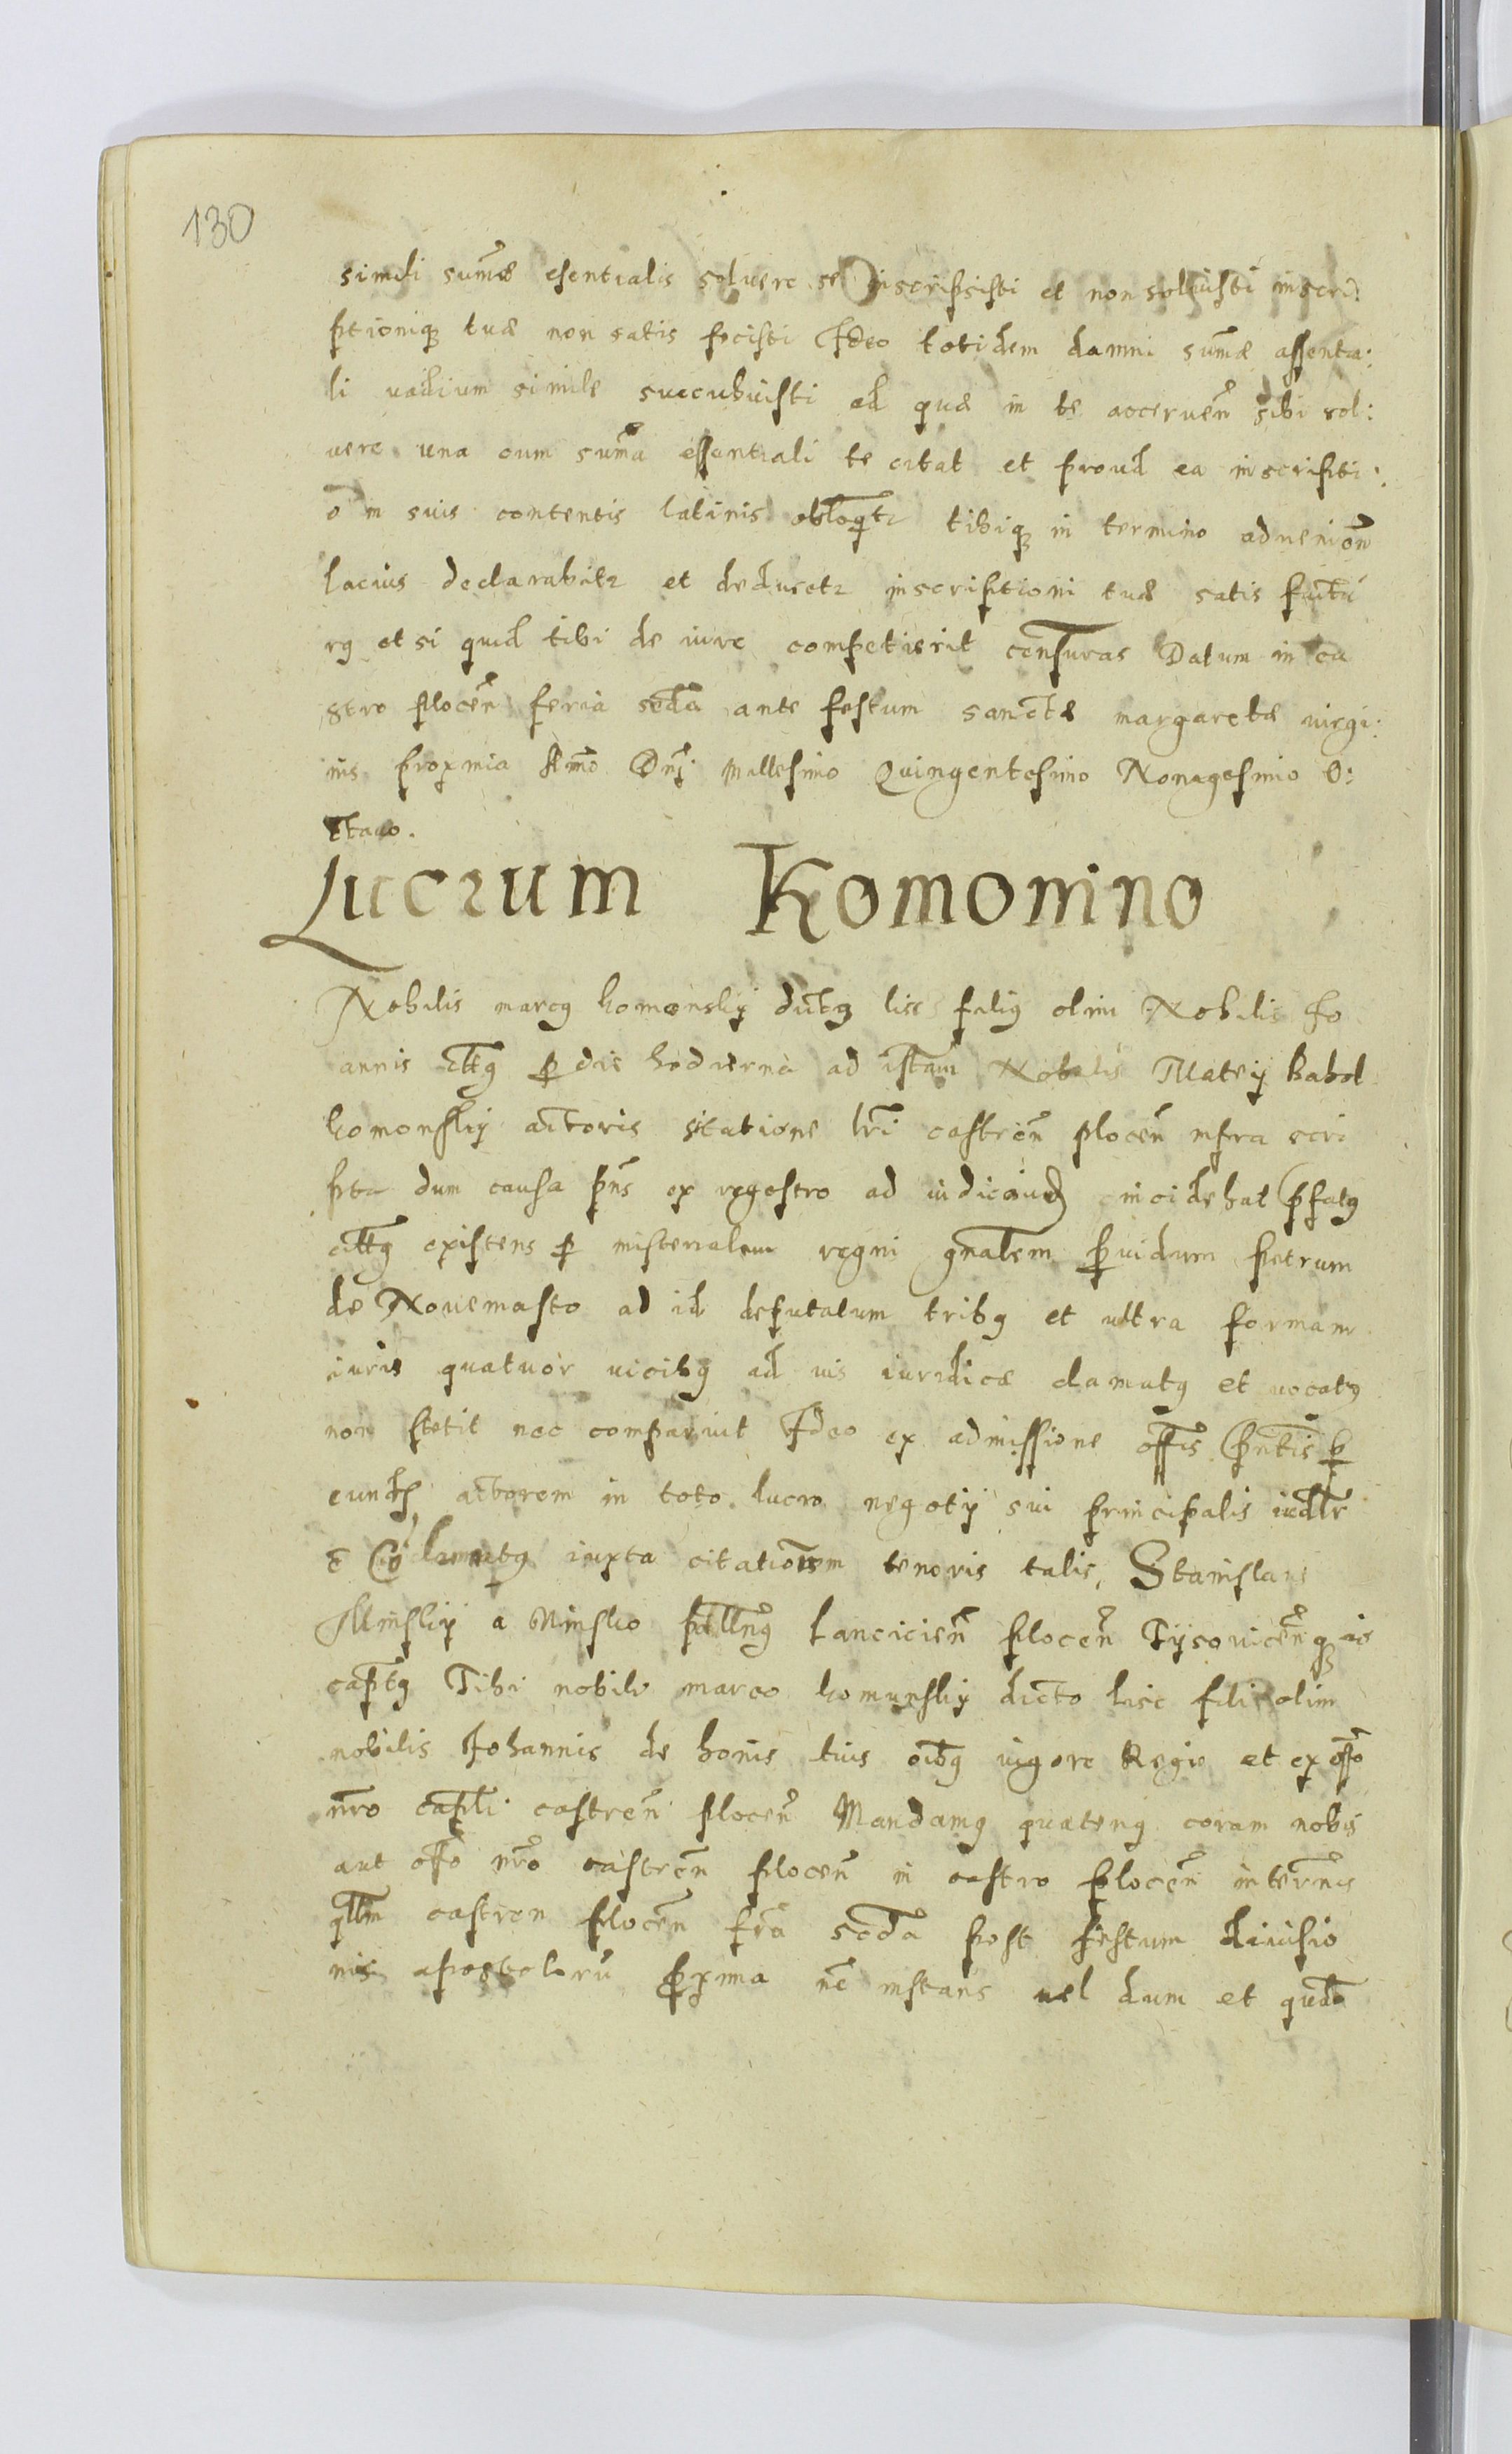 130
simili sum̃æ esentialis soluere se inscripsisti et non soluisti inscri:
ptioniq; tuæ non satis fecisti Ideo totidem damni sum̃æ assentia:
li uadium simile succubuisti ad quæ in te accerueñ sibi sol:
uere una cum sum̃a essentiali te citat et proud ea inscripti:
o in suis contentis latinis obloqt̃r tibiq; in termino aduenioñ
lacius declarabitr et deducetr inscriptioni tuæ satis factu
rꝯ et si quid tibi de iure competierit censuras Datum in ca
stro ploceñ feria secd̃a ante festum sanctæ margaretæ uirgi:
nis proxmia Anno Dnĩ Millesimo Quingentesimo Nonagesimo O:
ctauo.
Lucrum Komonino
Nobilis marcꝯ komonskÿ dictꝯ lis filiꝯ olim Nobilis Jo
annis citatꝯ ꝑ die hodierna ad istam Nobilis Mateÿ babol
komonskÿ actoris sitatione lrĩ castreñ ploceñ infra scri
ptr dum causa pñs ex regestro ad iudicand incidebat pfatꝯ
cittꝯ existens ꝑ misterialem regni gnalem ꝓuidum petrum
de Nouemasto ad id deputatum tribꝯ et ultra formam
iuris quatuor uicibꝯ ad uis iuridicæ clamatꝯ et uocatꝯ
non stetit nec comparuit Ideo ex admissione offis pñtis ꝑ
eund actorem in toto lucro negotÿ sui principalis iudlr
e codemnatꝯ iuxta citationem tenoris talis, Stanislaus
Minskÿ a Minsko pallnꝯ Lancicieñ ploceñ Tÿsouiceñq; is
captꝯ Tibi nobili marco komunskÿ dicto lise filio olim
nobilis Johannis de bonis tuis oibꝯ uigore Regio et ex offo
nr̃o capli castreñ ploceñ Mandamꝯ quatenꝯ coram nobis
aut offo nr̃o castreñ ploceñ in castro ploceñ in terñis
qllm castren ploceñ fr̃a secd̃a post festum diuisio
nis apostolorũ ꝓxima nc̃ instans uel dum et quãdo